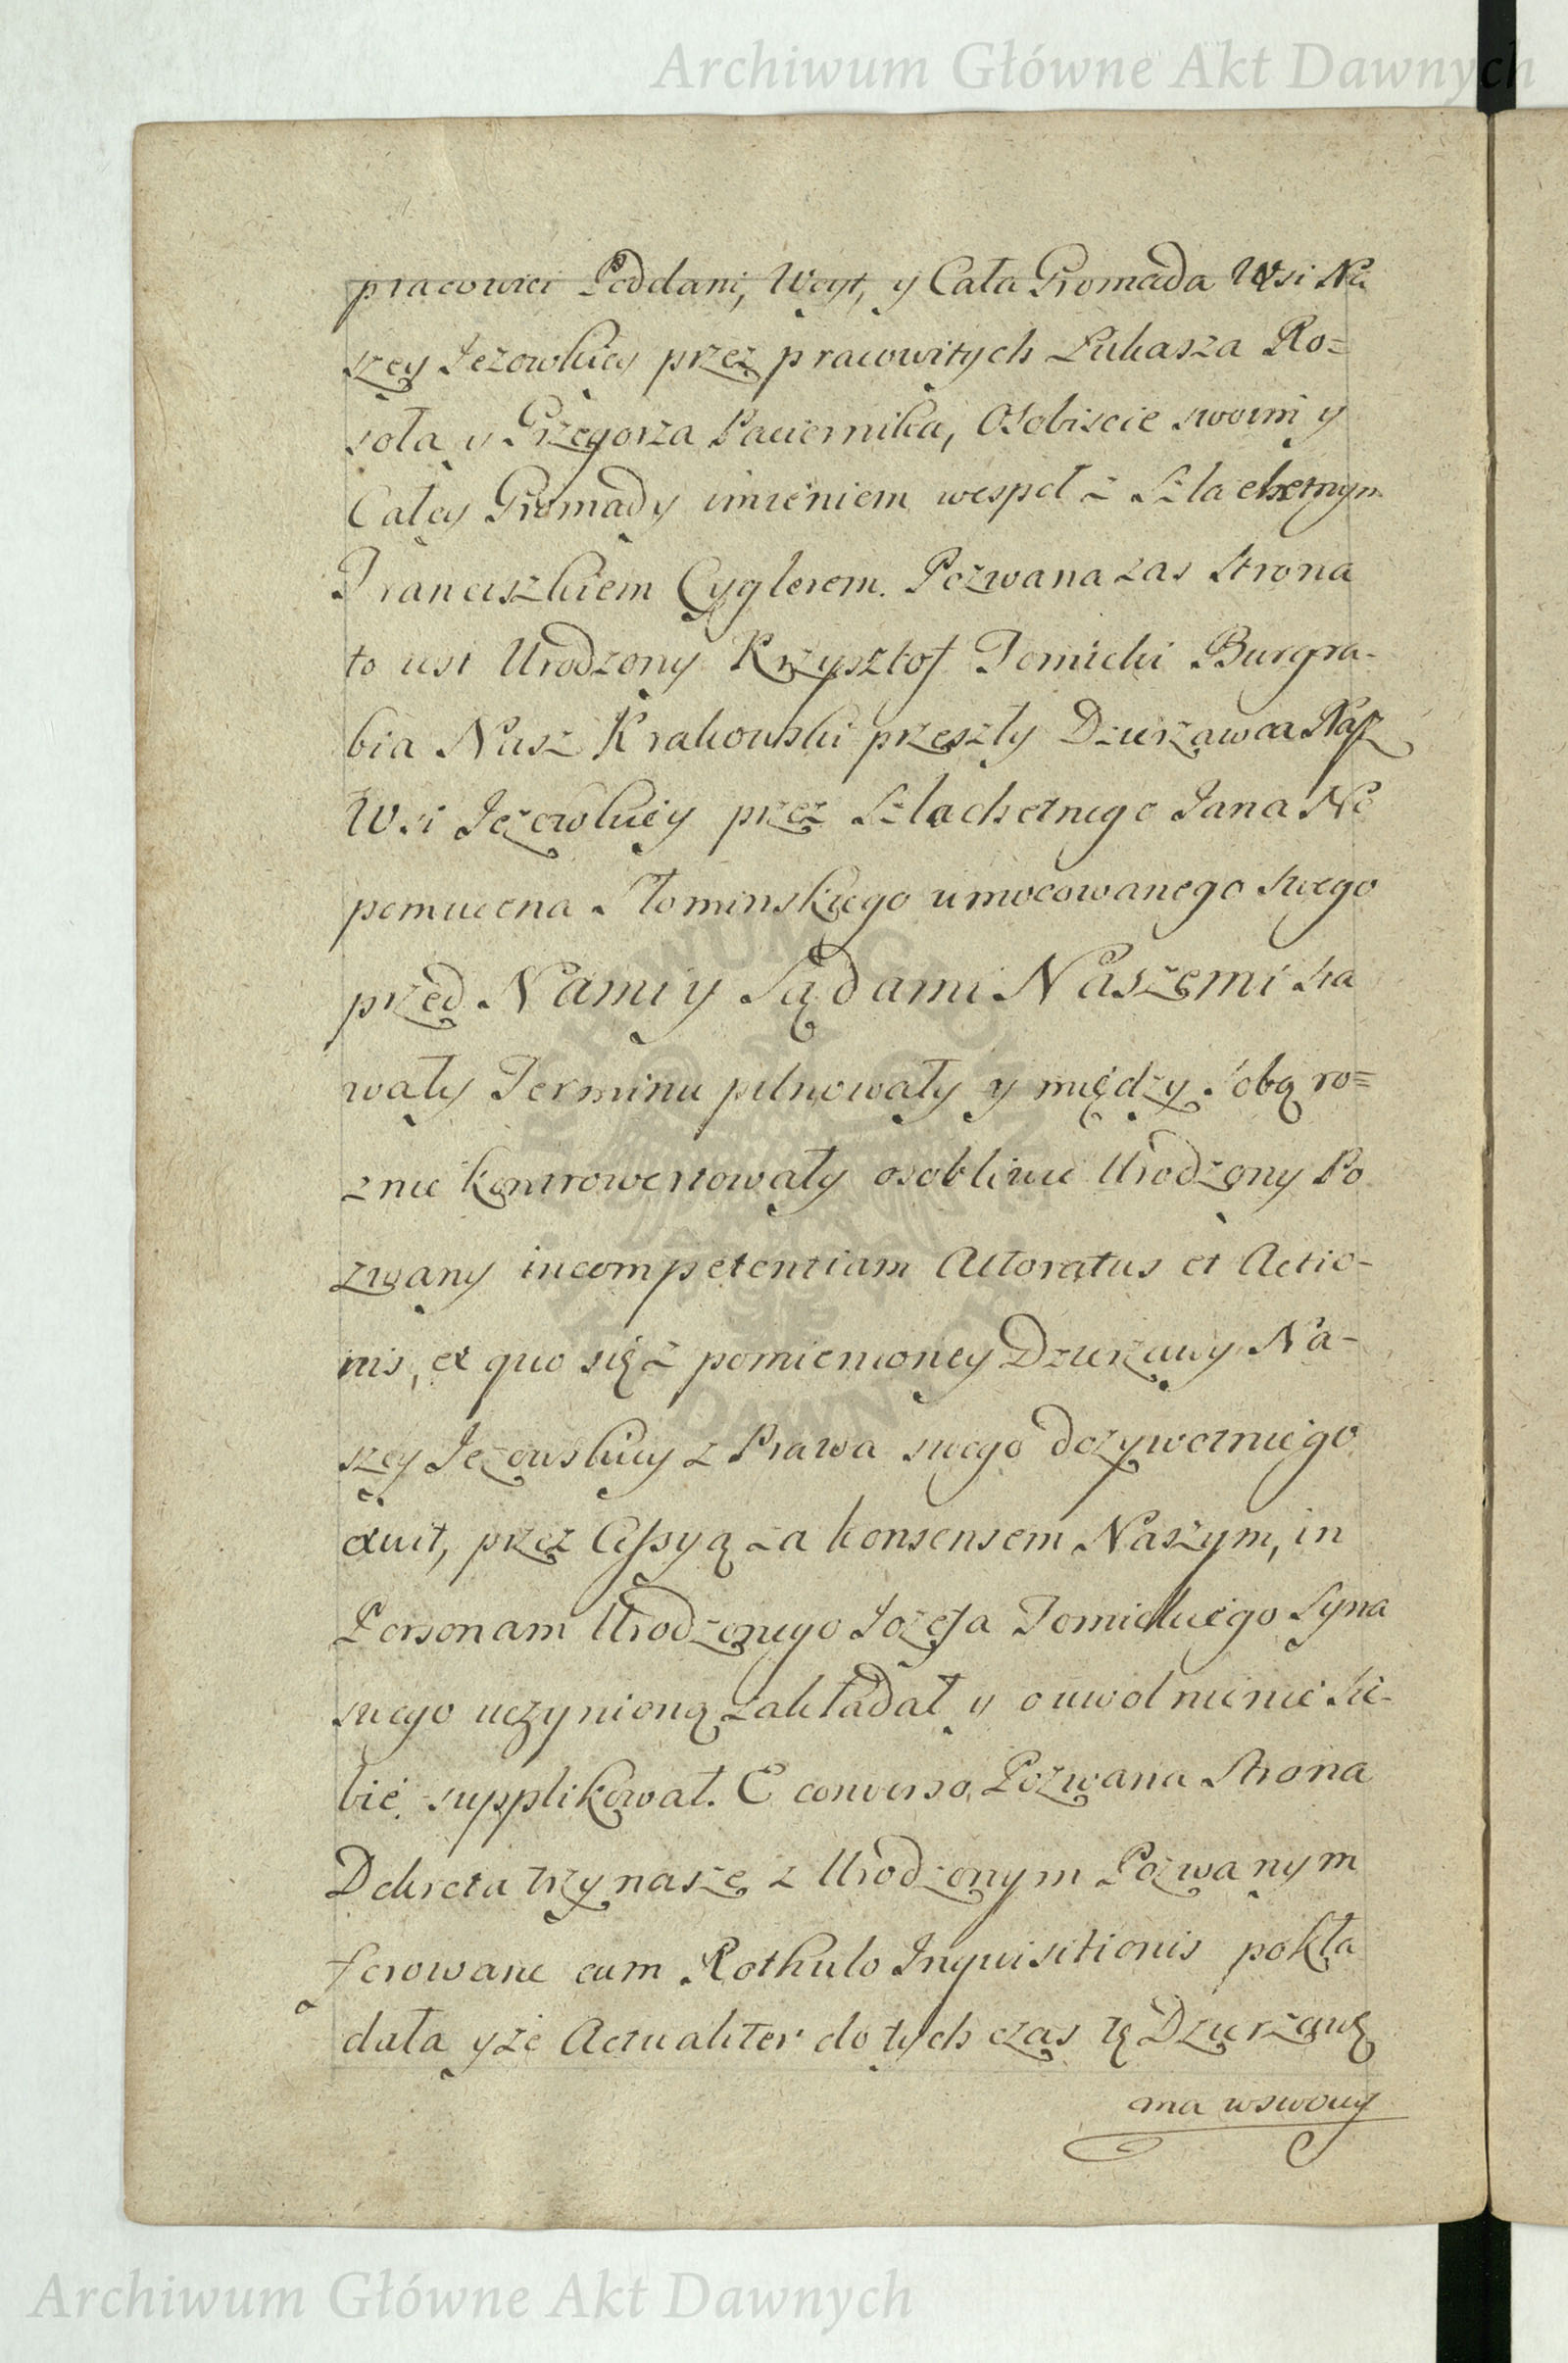 Archiwum Główne Akt Dawnych
pracowici Poddani, Woyt, y Cała Gromada Wsi Na
szey Jezowkiey przez pracowitych Łukasza Ro=
soła y Grzegorza Paciernika, Osobiscie swoim y
Całey Gromady imieniem wespoł z Szlachetnym
Franciszkiem Cyglerem. Pozwana zas Strona
to iest Urodzony Krzysztof Tomicki Burgra-
bia Nasz Krakowski przeszły Dzierzawca Nasz
Wsi Jeżowkiey przez Szlachetnego Jana Ne
pomucena Słominskiego umocowanego swego
przed Nami y Sądami Naszemi sta
wały Terminu pilnowały y między sobą ro=
znie kontrowertowały osobliwie Urodzony Po
zwany incompetentiam Actoratus et Actio-
nis, ex quo się z pomienioney Dzierzawy Na-
szey Jezowskiey z Prawa swego dozywotniego
exuit, przez Cessyą za konsensem Naszym, in
Personam Urodzonego Jozefa Tomickiego Syna
swego uczynioną zakładał y o uwolnienie sie-
bie supplikował. E converso Pozwana Strona
Dekreta trzy nasze z Urodzonym Pozwanym
ferowane cum Rothulo Inquisitionis pokła
dała y że Actualiter do tych czas tę Dzierzawę
ma w swoiey
Archiwum Główne Akt Dawnych